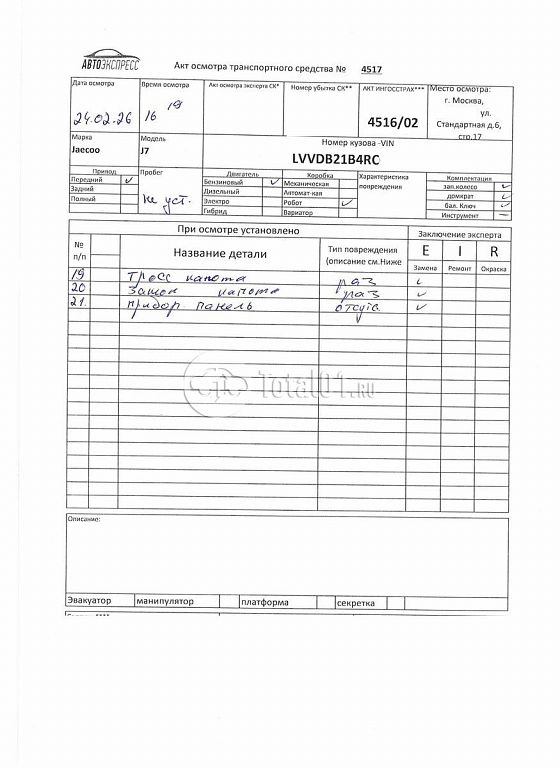 АВТОЭКСПРЕСС
Акт осмотра транспортного средства № 4517
Дата осмотра
24.02.26
Время осмотра
16 19
Акт осмотра эксперта СК*
Номер убытка СК**
АКТ ИНГОССТРАХ***
4516/02
Место осмотра:
г. Москва,
ул.
Стандартная д.6,
стр.17
Марка
Jaecoo
Модель
J7
Номер кузова -VIN
LVVDB21B4RC
Привод
Передний ✓
Задний
Полный
Пробег
не уст.
Двигатель
Бензиновый ✓
Дизельный
Электро
Гибрид
Коробка
Механическая
Автомат-кая
Робот ✓
Вариатор
Характеристика
повреждения
Комплектация
зап.колесо ✓
домкрат ✓
бал. Ключ ✓
Инструмент —
При осмотре установлено
Заключение эксперта
№
п/п
Название детали
Тип повреждения
(описание см.Ниже
E I R
Замена Ремонт Окраска
19 Трос капота раз ✓
20 Замок капота раз ✓
21. прибор. панель отсутс. ✓
Total01.RU
Описание:
Эвакуатор манипулятор платформа секретка